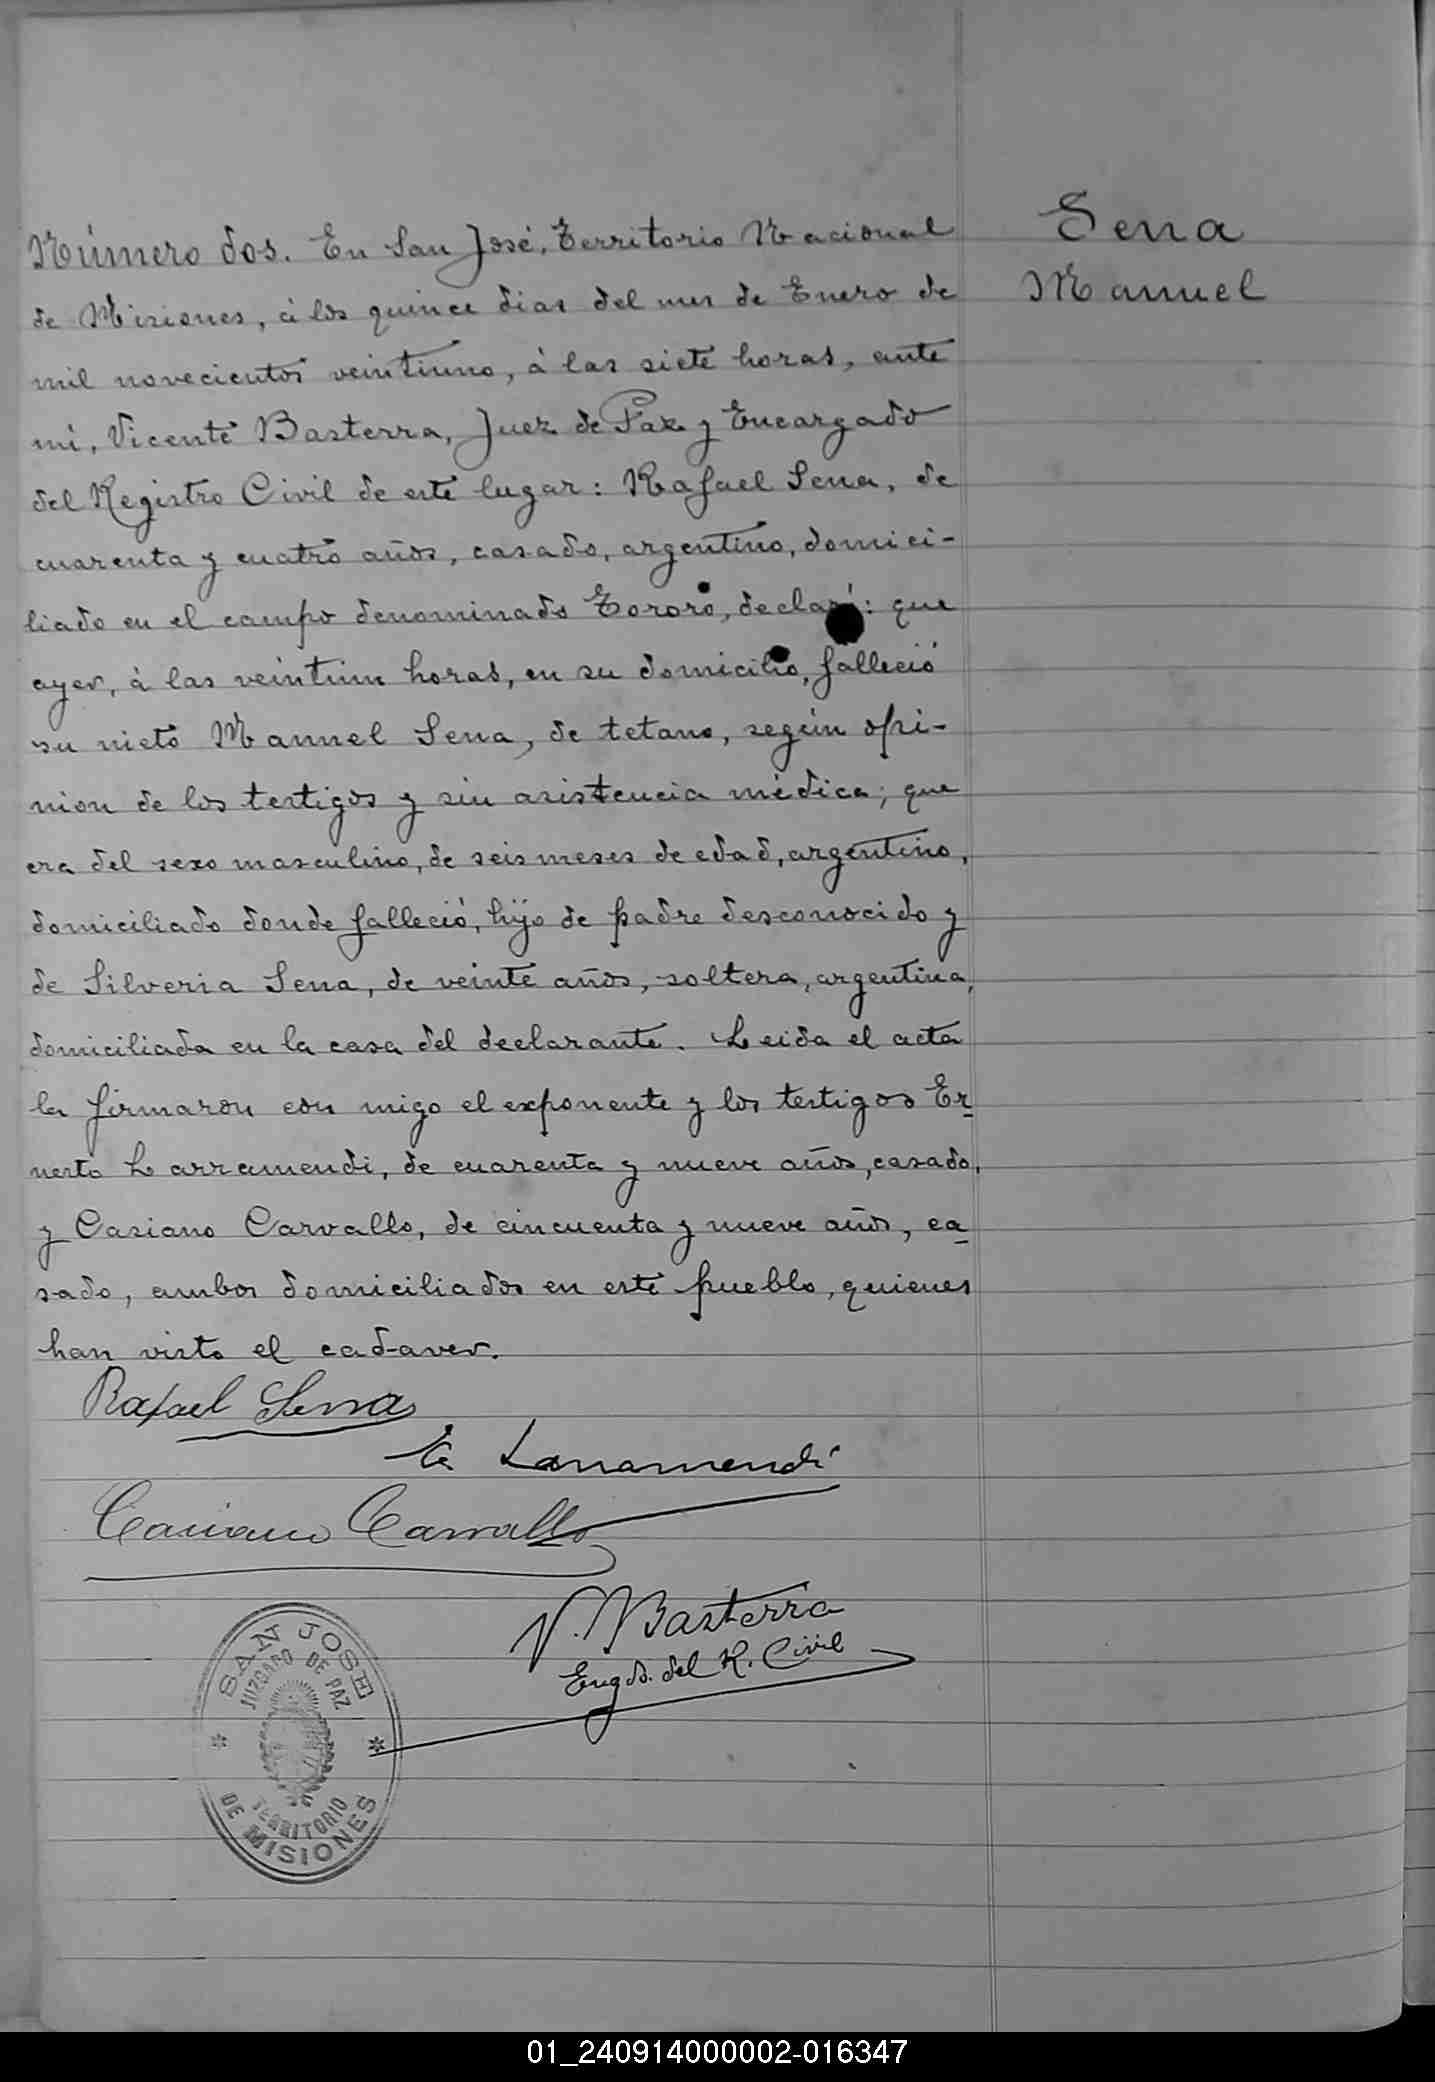 Sena
Manuel
Número dos. En San José, Territorio Nacional
de Misiones, á los quince dias del mes de Enero de
mil novecientos veintiuno, á las siete horas, ante
mi, Vicente Basterra, Juez de Paz y Encargado
del Registro Civil de este lugar: Rafael Sena, de
cuarenta y cuatro años, casado, argentino, domici-
liado en el campo denominado Tororó, declaró: que
ayer, á las veintiun horas, en su domicilio, falleció
su nieto Manuel Sena, de tetano, según opi-
nion de los testigos y sin asistencia médica; que
era del sexo masculino, de seis meses de edad, argentino,
domiciliado donde falleció, hijo de padre desconocido y
de Silveria Sena, de veinte años, soltera, argentina,
domiciliada en la casa del declarante. Leida el acta
la firmaron con migo el exponente y los testigos Er-
nesto Larramendi, de cuarenta y nueve años, casado,
y Casiano Carvallo, de cincuenta y nueve años, ca-
sado, ambos domiciliados en este pueblo, quienes
han visto el cadaver.
Rafael Sena
E Larramendi
Casiano Carvallo
V. Basterra
Engdo. del R. Civil
SAN JOSE
JUZGADO DE PAZ
TERRITORIO
DE MISIONES
01_240914000002-016347